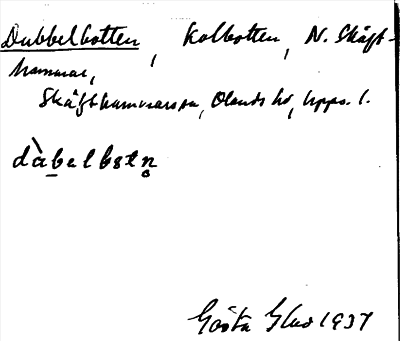 Dubbelbotten, Kolbotten, N. Skäft-
hammar,
Skäfthammars sn, Olands hd, Upps. l.
dàbelbɔtn̥
Gösta 1937